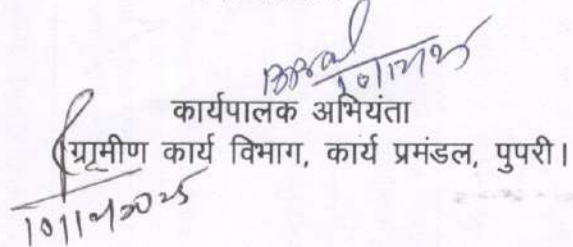 10/12/25
कार्यपालक अभियंता
ग्रामीण कार्य विभाग, कार्य प्रमंडल, पुपरी।
10/12/2025